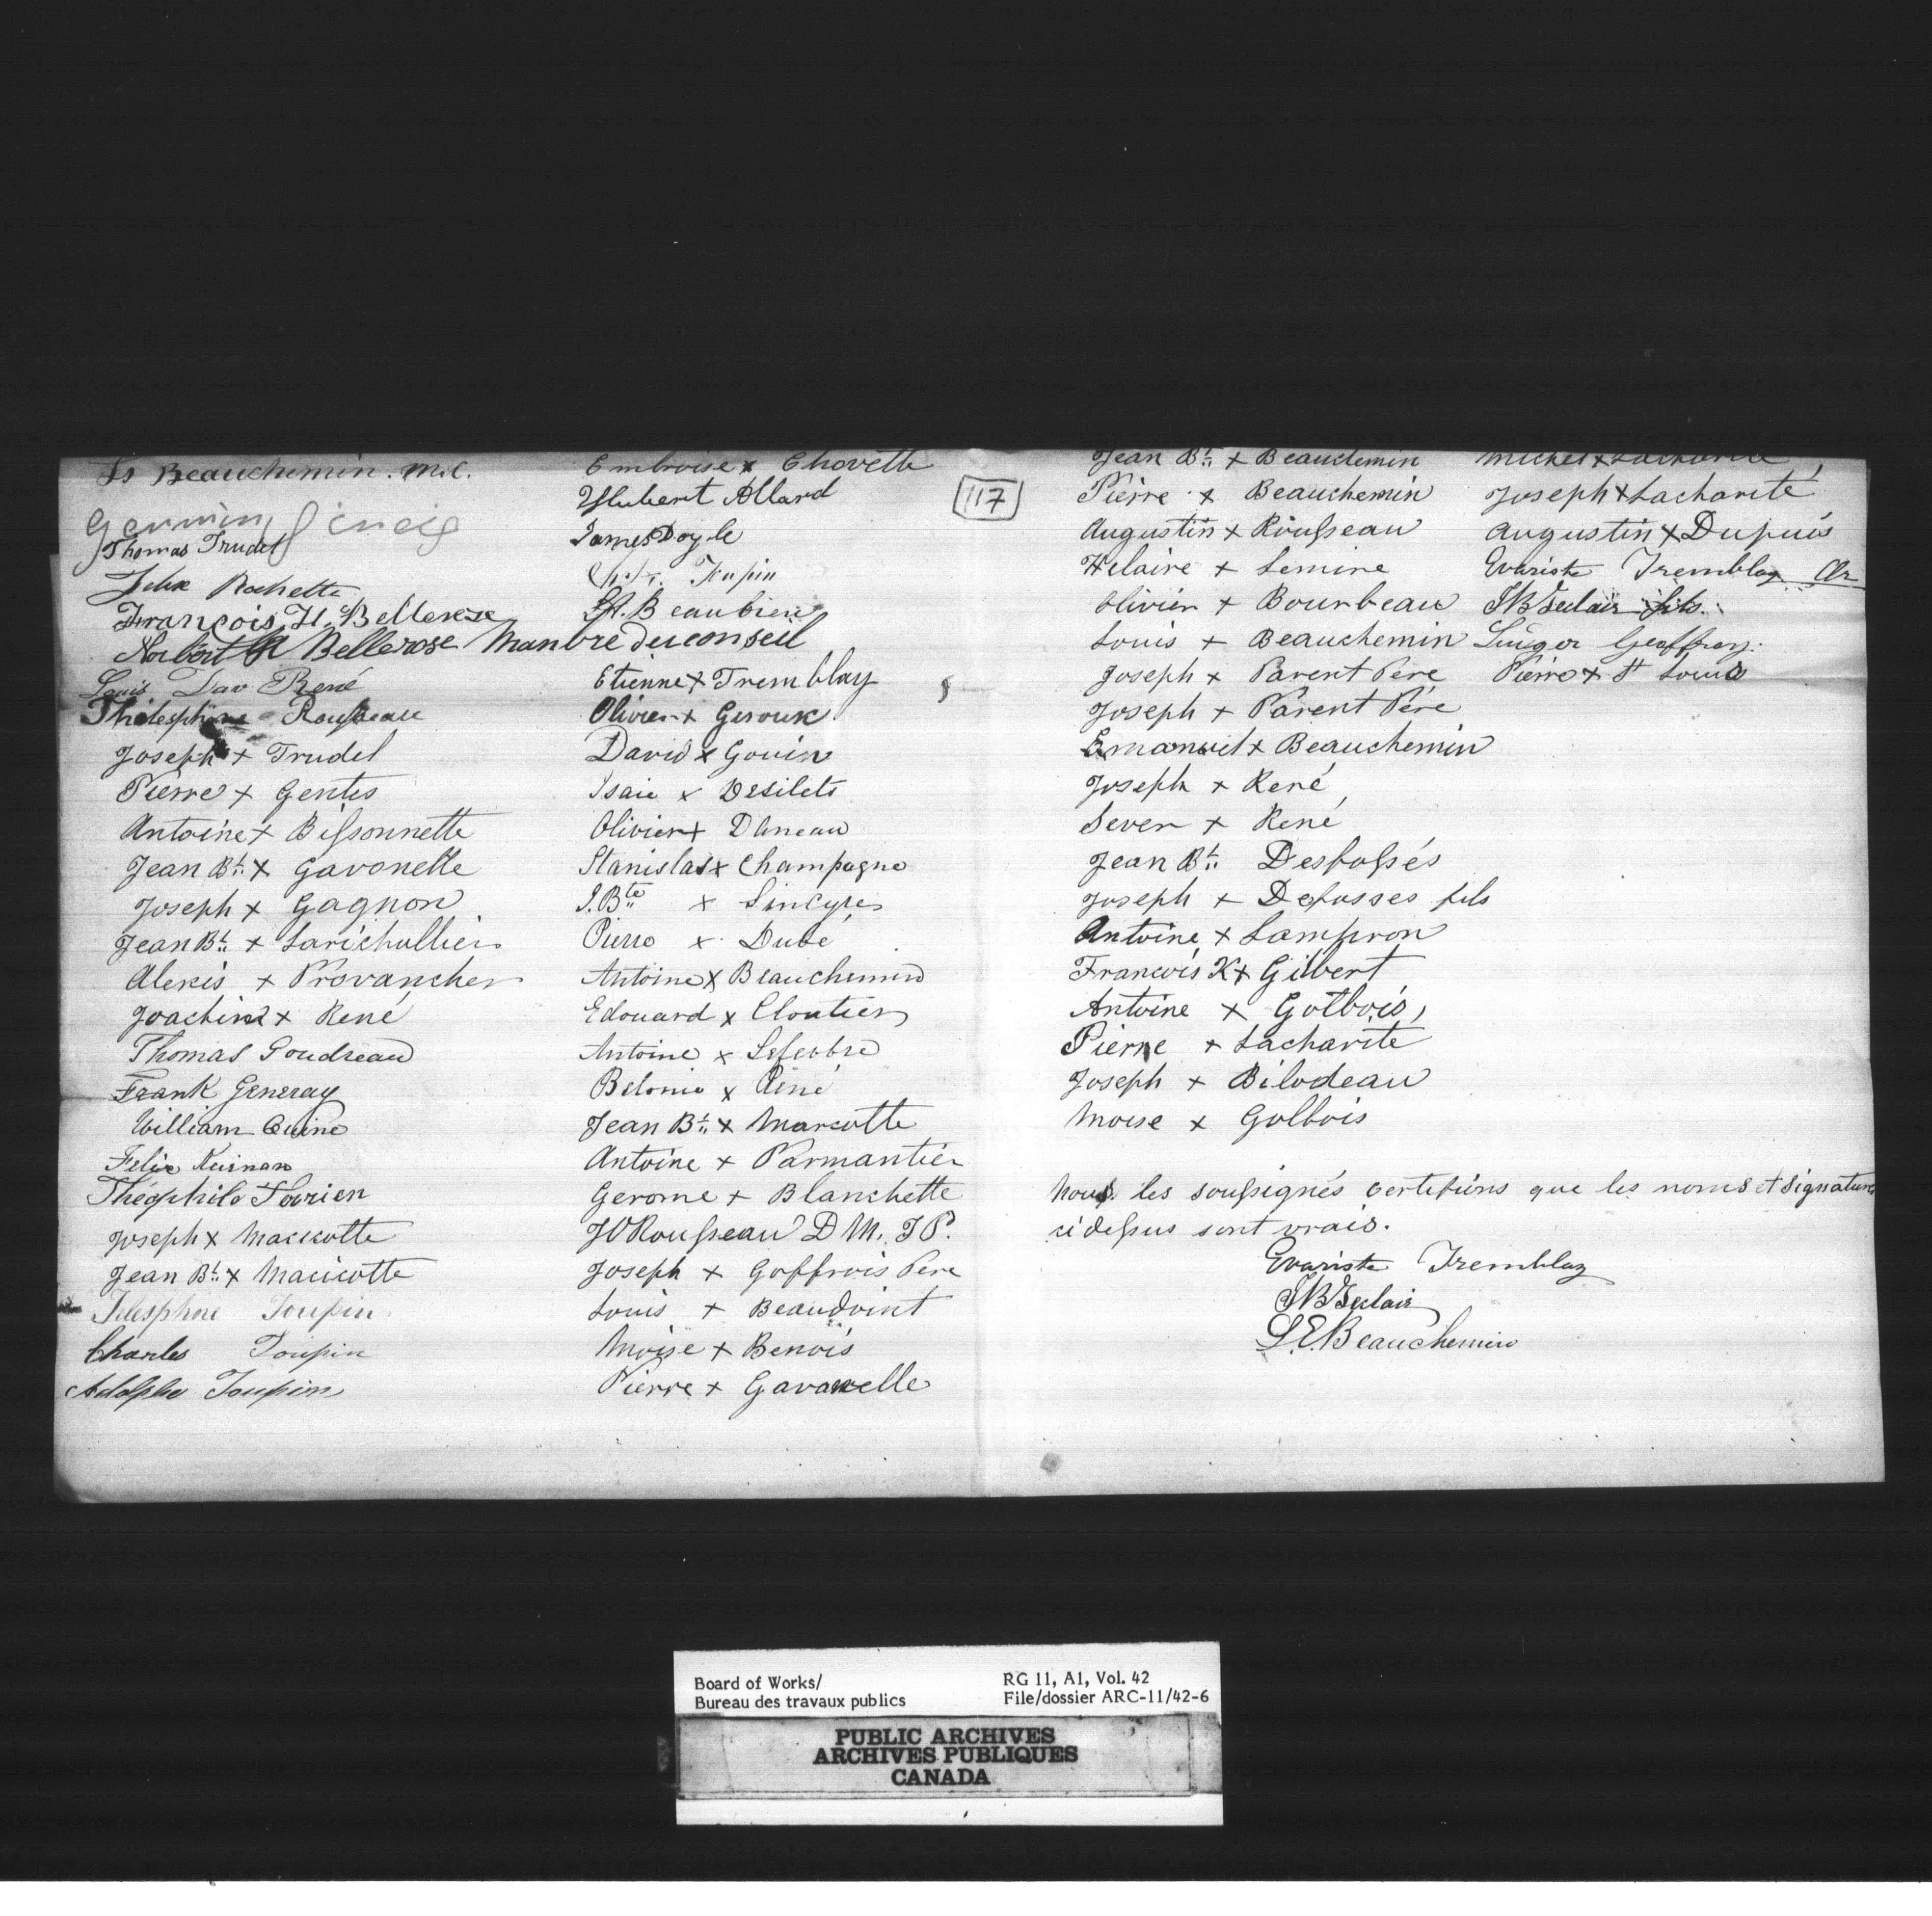 Ls Beauchemin. m.c.
Germin
Thomas Trudel
Felix Rochette
François H. Bellerose
Norbert R Bellerose Manbre du conseil
Louis Dav René
Thélesphore Rousseau
Joseph x Trudel
Pierre x Gentes
Antoine x Bissonnette
Jean Bt. x Gavonelle
Joseph x Gagnon
Jean Bt. x Larichallier
Alexis x Provancher
Joachim x René
Thomas Goudreau
Frank Generay
William Quine
Felix Kuirnan
Théophile Therrien
Joseph x Maccotte
Jean Bt. x Macicotte
Telesphore Toupin
Charles Toupin
Adolphe Toupin
Embroise x Chorette
Hubert Allard
James Doyle
Toupin
Beaubien
Etienne x Tremblay
Olivier x Geroux
David x Gouin
Isaie x Desilets
Olivier x Duneau
Stanislas x Champagne
J. Bte x Sincyre
Pierre x Dubé
Antoine x Beauchemin
Edouard x Cloutier
Antoine x Lefevbre
Belonie x René
Jean Bt. x Marcotte
Antoine x Parmantier
Gerome x Blanchette
JO Rousseau D M. J P.
Joseph x Goffrois Pere
Louis x Beaudoint
Moise x Benois
Pierre x Gavanelle
117
Jean Bt. x Beauchemin
Pierre x Beauchemin
Augustin x Rousseau
Helaire x Lemire
Olivier x Bourbeau
Louis x Beauchemin
Joseph x Parent Pere
Joseph x Parent Pére
Emanuel x Beauchemin
Joseph x René
Sever x René
Jean Bt. Desfossés
Joseph x Defosses fils
Antoine x Lampron
Francois X x Gilbert
Antoine x Golbois
Pierre x Lacharite
Joseph x Bilodeau
Moise x Golbois
Michel x Lacharité
Joseph x Lacharité
Augustin x Dupuis
Evariste Tremblay
JB Leclair fils
Luiger Geoffroy.
Pierre x St Louis
Nous les soussignés certifions que les noms et signatures
ci dessus sont vrais.
Evariste Tremblay
JB Leclair
L.E. Beauchemin
Board of Works/
Bureau des travaux publics
RG 11, A1, Vol. 42
File/dossier ARC-11/42-6
PUBLIC ARCHIVES
ARCHIVES PUBLIQUES
CANADA